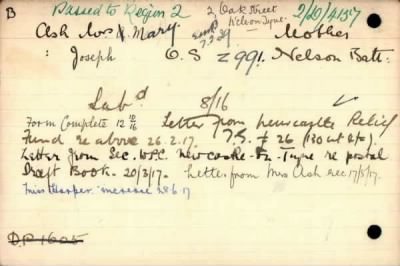 B Passed to Region 2 2 Oak Street 2/10/4157
Nelson Tyne.
Ash Mrs K. Mary Mother
: Joseph O.S Z 991. Nelson Batt.
8/16
Form Complete 12 10/16 Letter from Newcastle Relief
Fund re above 26.2.17. T.S. £ 26
Letter from Sec. W.P.C Newcastle-on-Tyne re postal
Draft Book - 20/3/17. Letter from Mrs Ash rec 17/5/17.
Miss Harper. increase 28.6.17
D.P. 1605